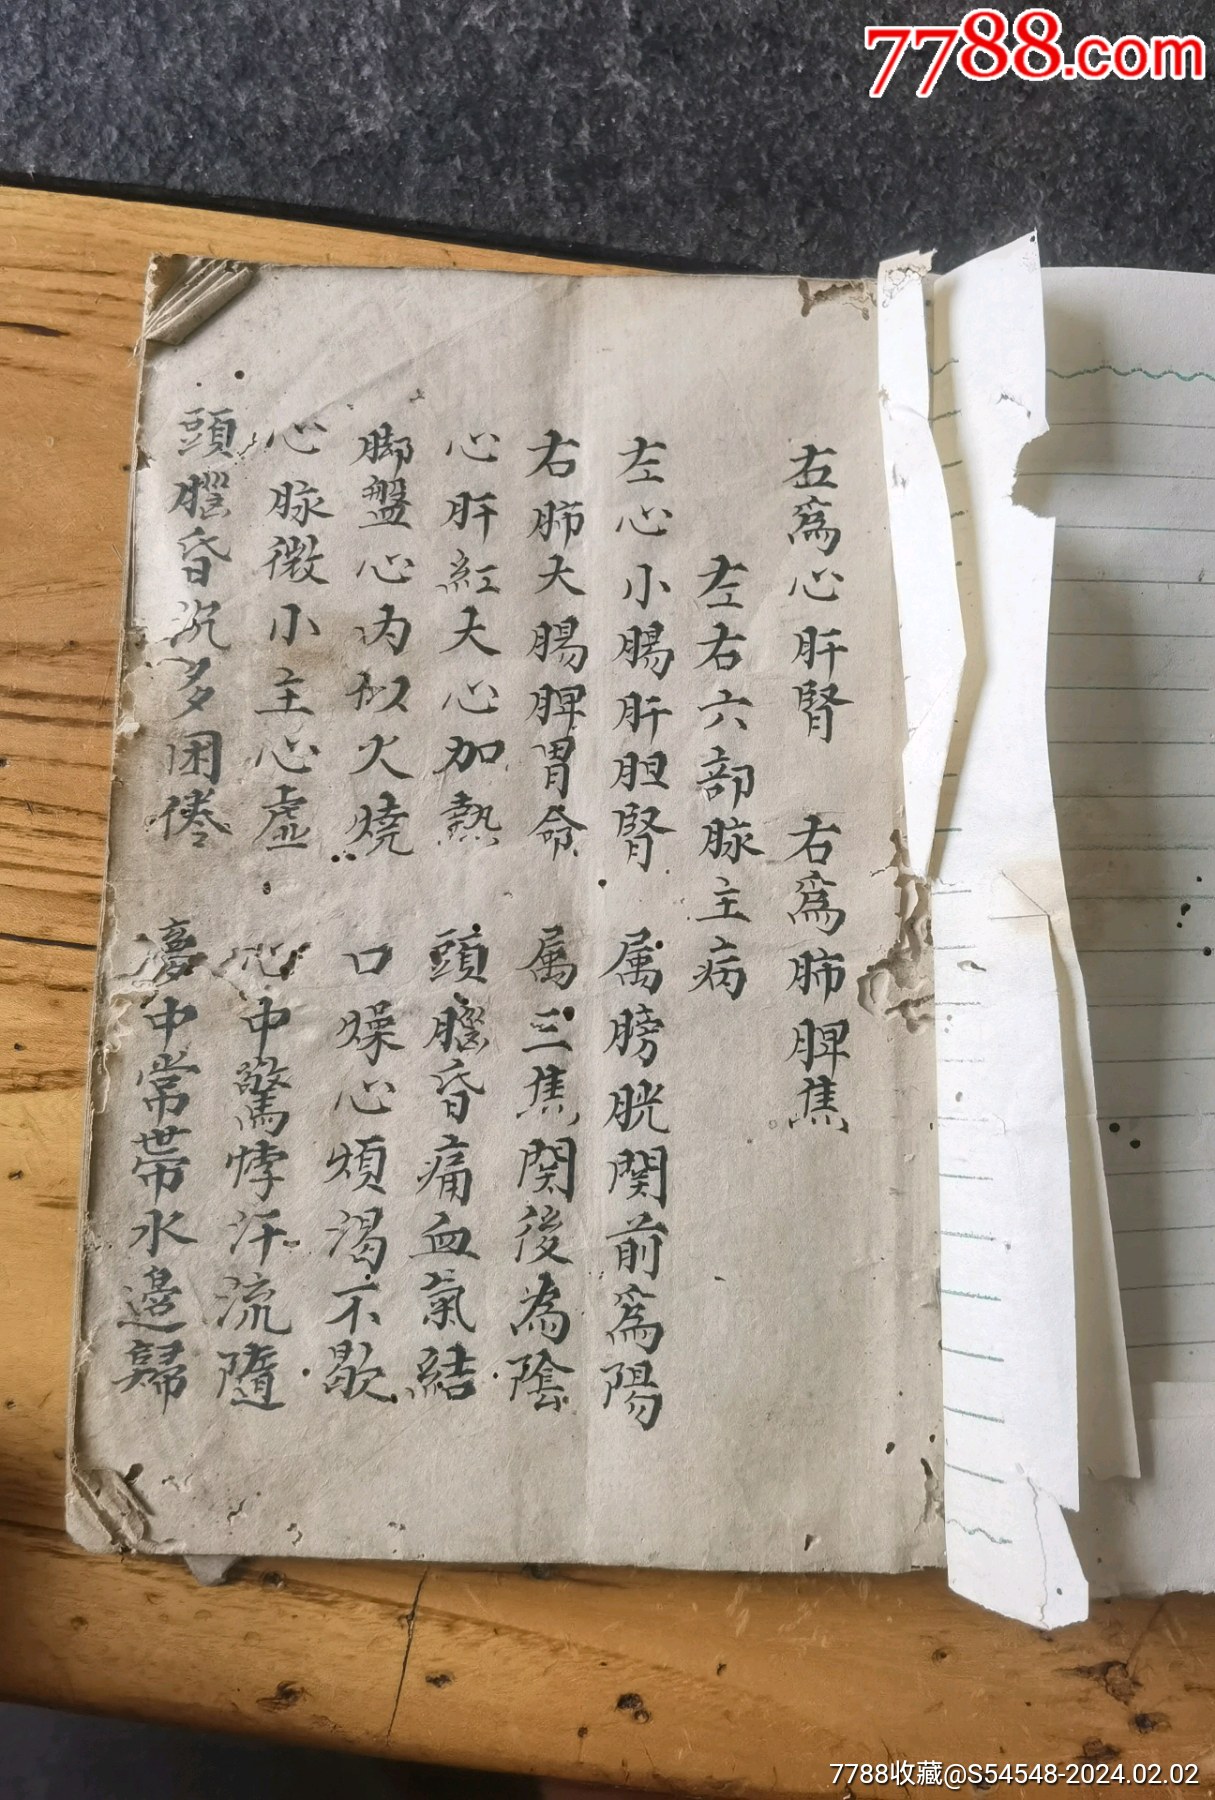 7788.com
左爲心肝腎 右爲肺脾焦
左右六部脉主病
左心小腸肝胆腎 属膀胱関前爲陽
右肺大腸脾胃命 属三焦関後為陰
心肝紅大心加熱 頭腦昏痛血氣結
脚盤心内似火燒 口燥心煩渴不歇
心脉微小主心虛 心中驚悸汗流隨
頭腦昏沉多困倦 夢中常帶水邊歸
7788收藏@S54548-2024.02.02